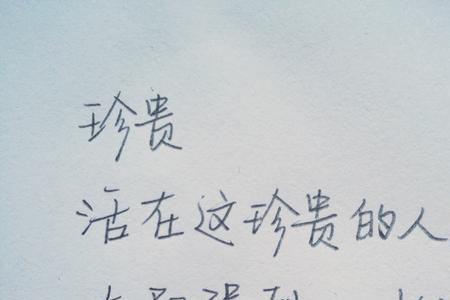 珍贵
活在这珍贵的人